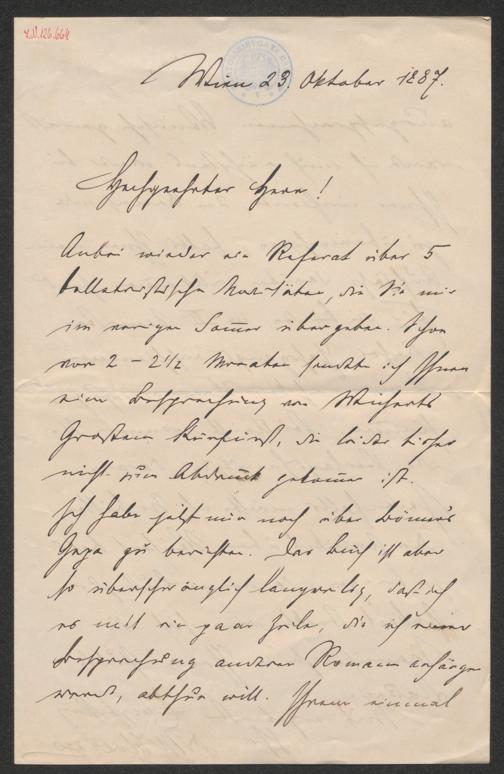 I.N. 126.664
Wien 23. Oktober 1887.
Hochgeehrter Herr!
Anbei wieder ein Referat über 5
belletristische Novitäten, die Sie mir
im vorigen Sommer übergeben. Schon
vor 2 – 2 1/2 Monaten sandte ich Ihnen
eine Besprechung von Wicherts
Großem Kurfürst, die leider bisher
nicht zum Abdruck gekommen ist.
Ich habe jetzt nur noch über
zu berichten. Das Buch ist aber
so überschwänglich langweilig, daß ich
es mit ein paar Zeilen, die ich einer
Besprechung anderer Romane anhängen
werde, abthun will. Ihrem einmal